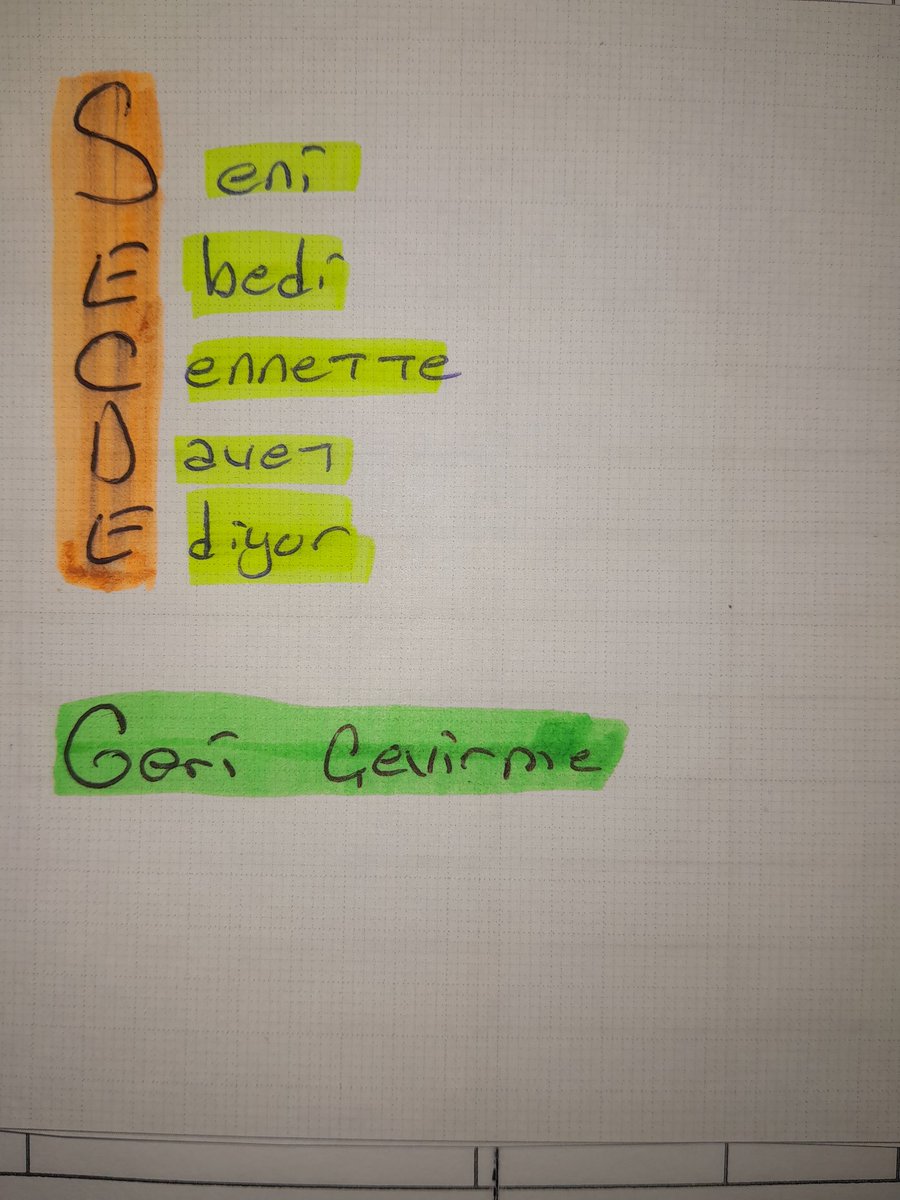 S eni
E bedi
C ennette
D avet
E diyor
Geri Çevirme